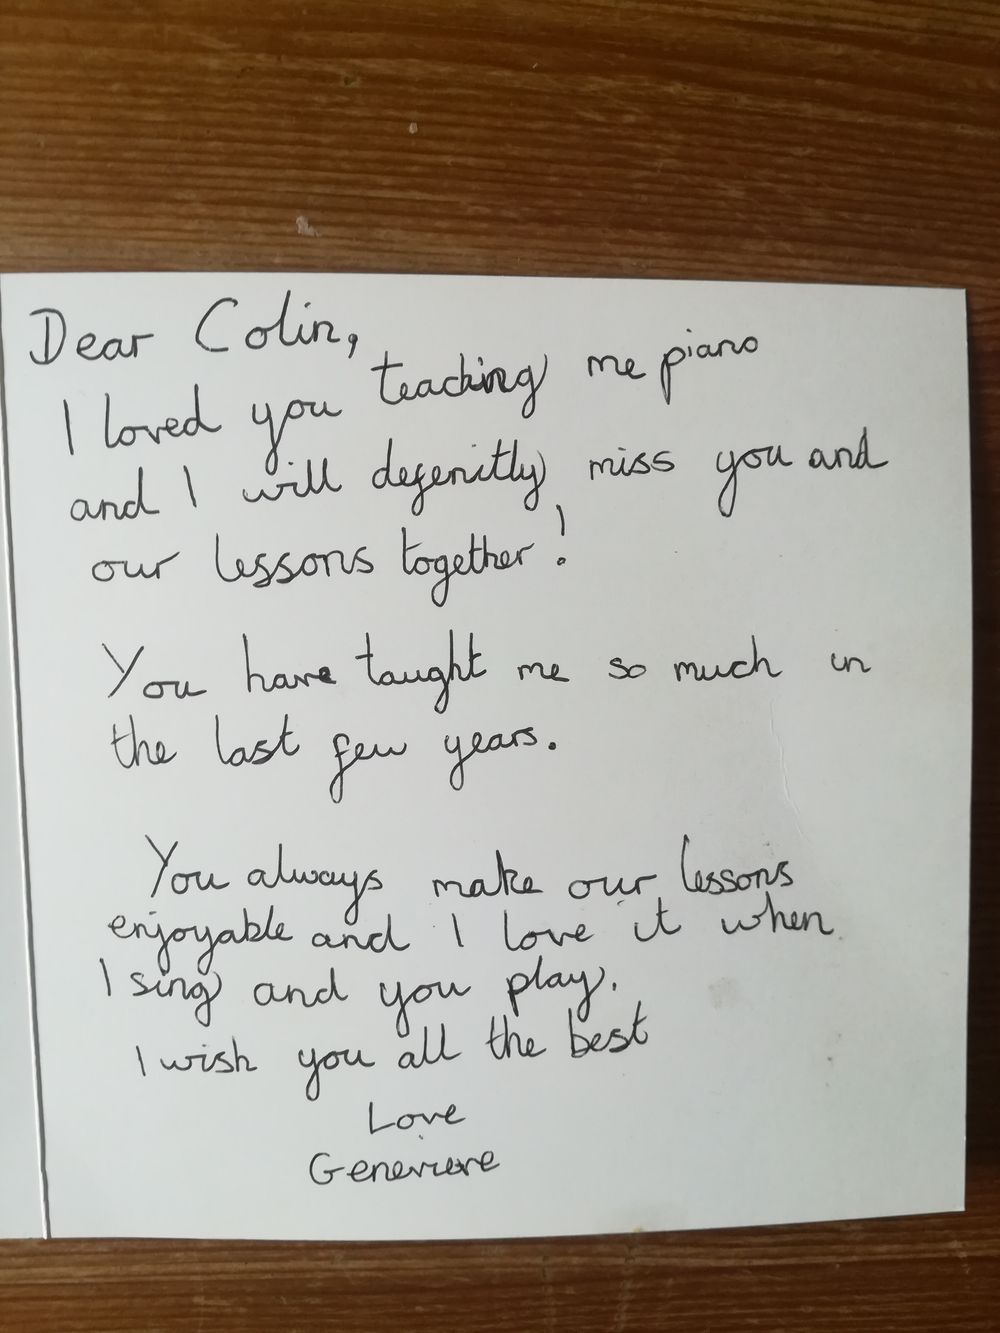 Dear Colin,
I loved you teaching me piano
and I will defenitly miss you and
our lessons together!
You have taught me so much in
the last few years.
You always make our lessons
enjoyable and I love it when
I sing and you play.
I wish you all the best
Love
Genevieve